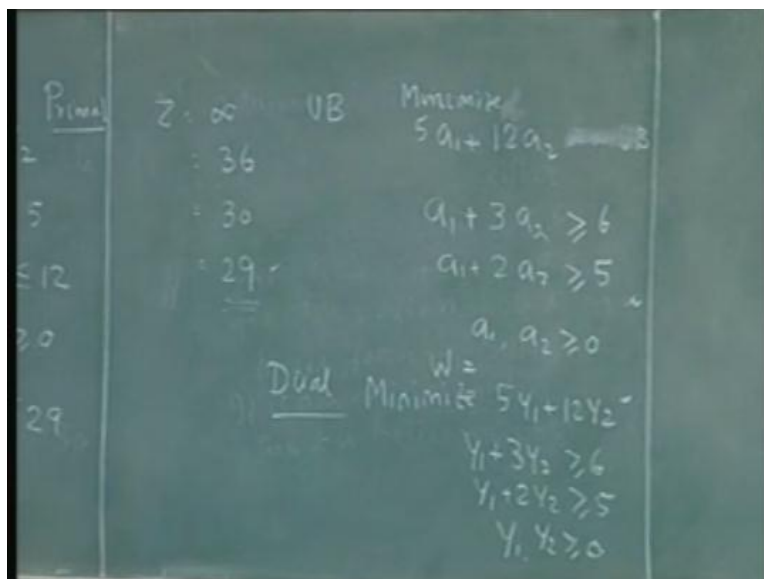 Primal
2
5
≤ 12
≥ 0
29
Z = ∞ UB
= 36
= 30
= 29
Minimize
5a₁ + 12a₂
a₁ + 3a₂ ≥ 6
a₁ + 2a₂ ≥ 5
a₁, a₂ ≥ 0
W =
Dual Minimize 5Y₁ + 12Y₂
Y₁ + 3Y₂ ≥ 6
Y₁ + 2Y₂ ≥ 5
Y₁, Y₂ ≥ 0